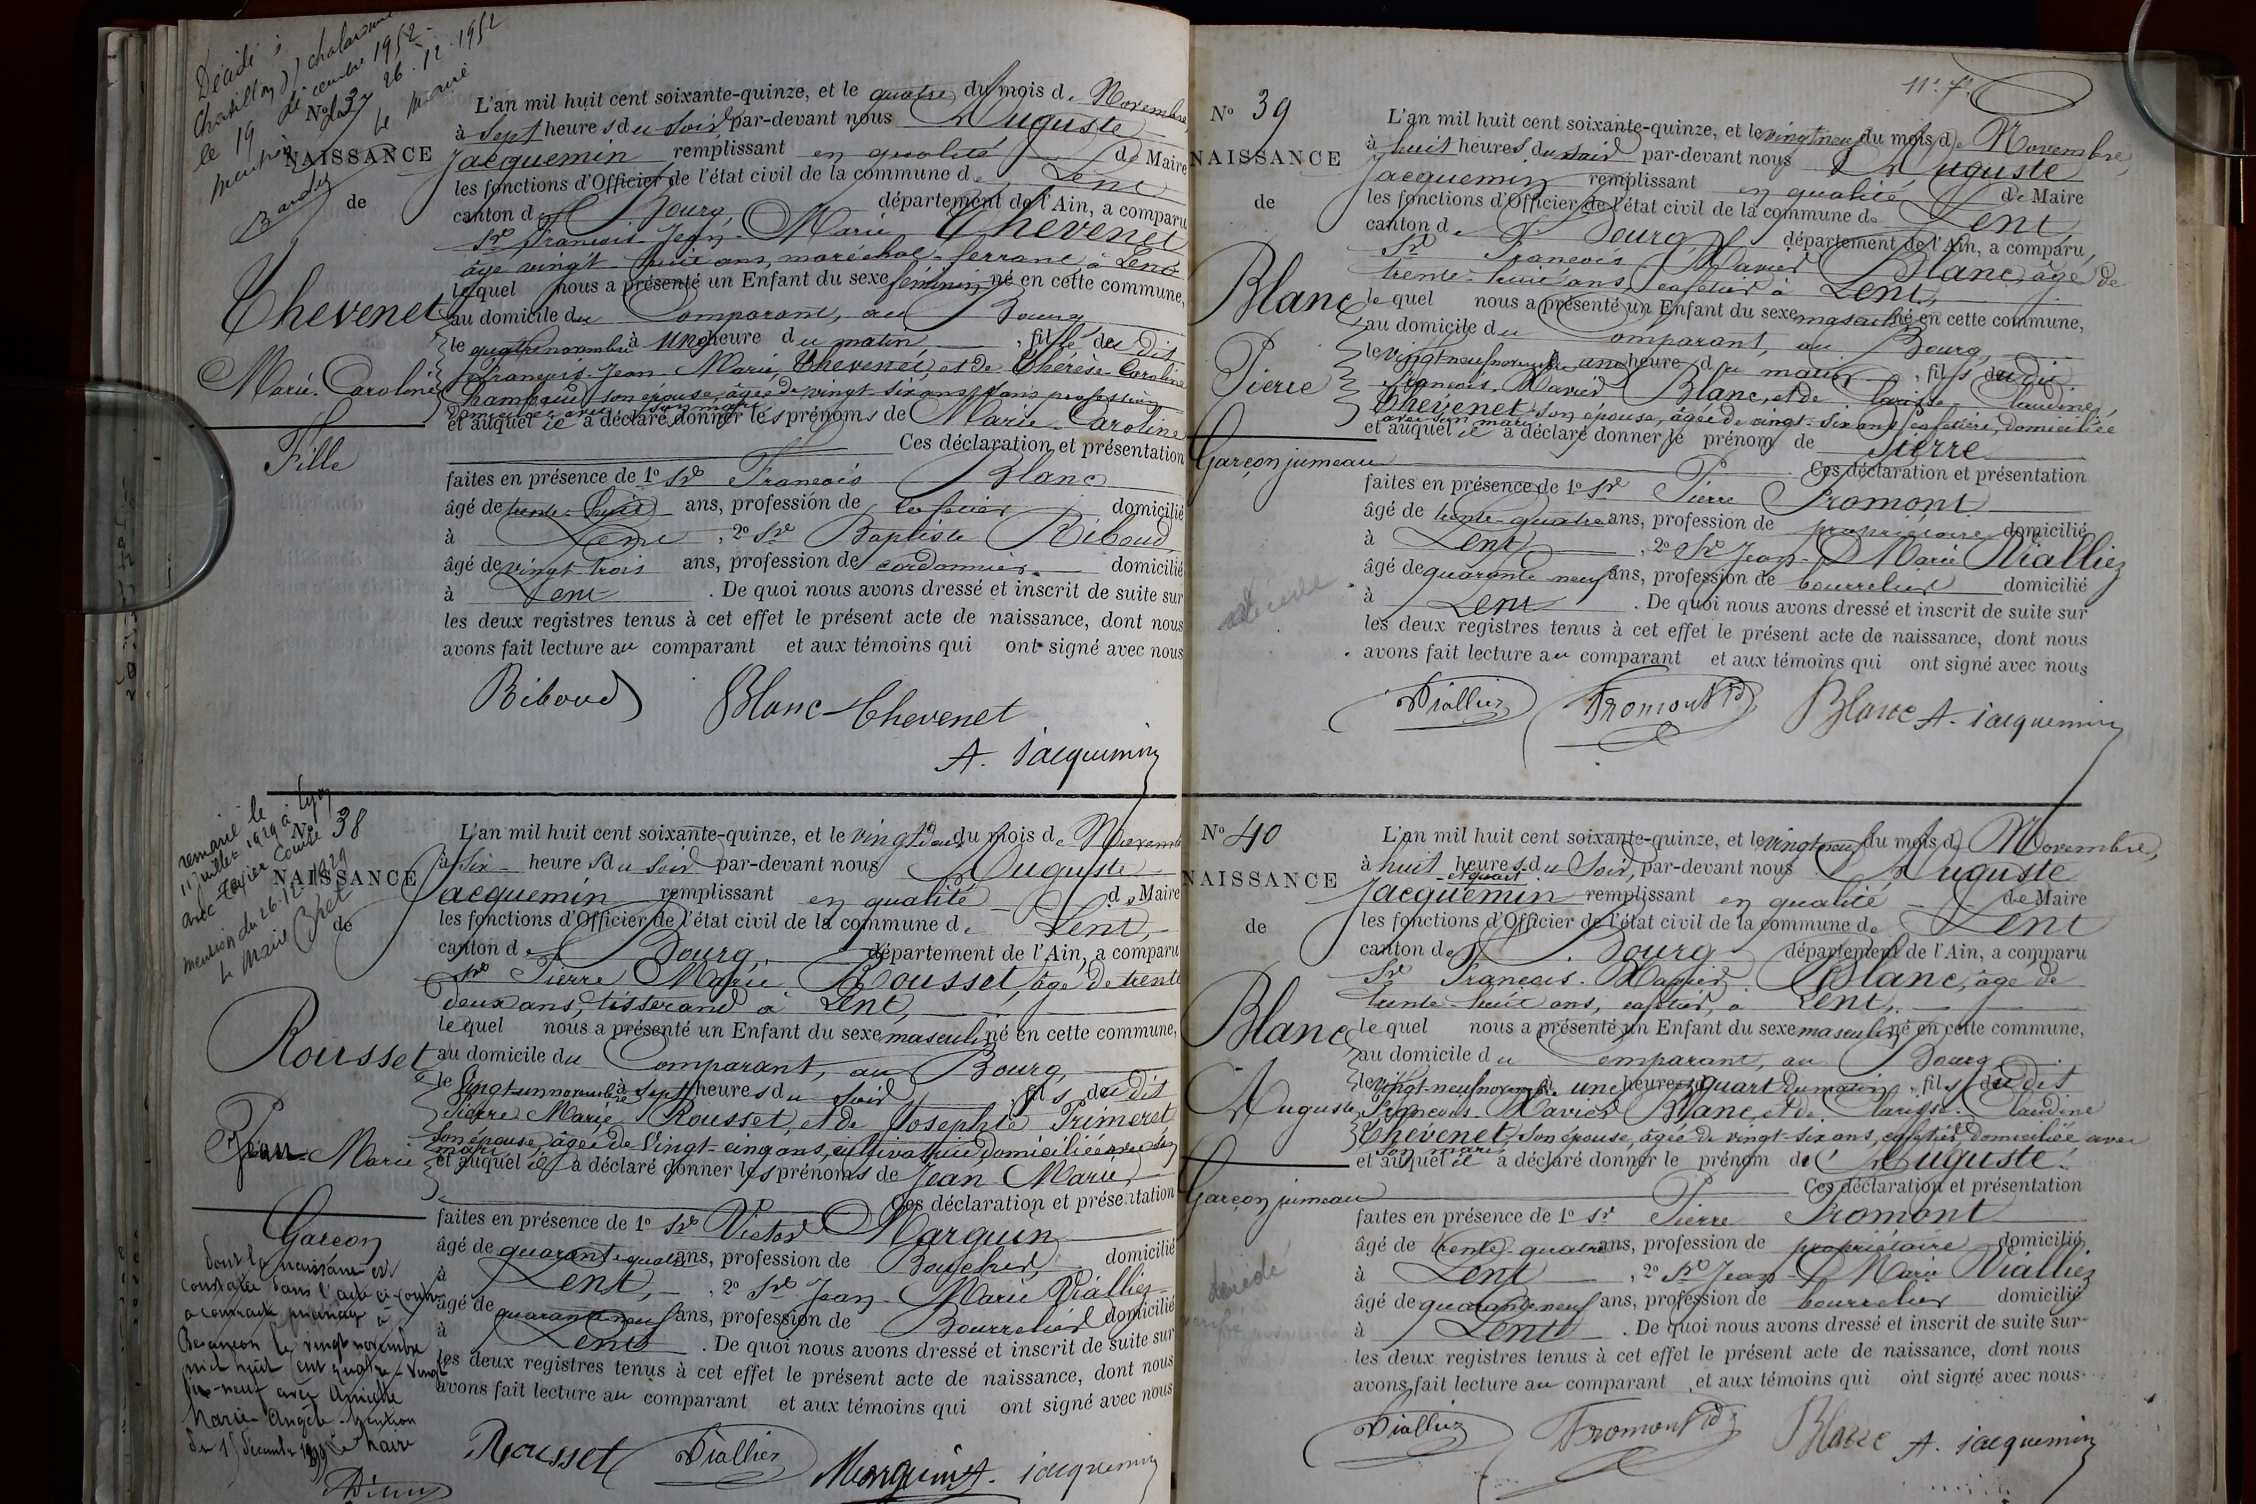 Décédé à
Chatillon s/ Chalaronne
le 19 décembre 1952
mention 26.12.1952
le Maire
No 37
NAISSANCE
de
Thevenet
Marie-Caroline
Fille
L'an mil huit cent soixante-quinze, et le quatre du mois de Novembre
à sept heures du soir par-devant nous Auguste
Jacquemin remplissant en qualité de Maire
les fonctions d'Officier de l'état civil de la commune de Lent
canton de Bourg, département de l'Ain, a comparu
Sr François-Jean-Marie Thevenet
âgé vingt-huit ans, maréchal-ferrant, à Lent
lequel nous a présenté un Enfant du sexe féminin né en cette commune,
au domicile du Comparant, au Bourg
le quatre novembre à une heure du matin, fille du dit
François-Jean-Marie Thevenet et de Thérèse-Caroline
son épouse, âgée de vingt-six ans, sans profession
domiciliée avec son mari
et auquel il a déclaré donner les prénoms de Marie-Caroline
Ces déclaration et présentation
faites en présence de 1o Sr François Blanc
âgé de trente-huit ans, profession de cafetier domicilié
à Lent, 2o Sr Baptiste Riboud,
âgé de vingt-trois ans, profession de cordonnier domicilié
à Lent. De quoi nous avons dressé et inscrit de suite sur
les deux registres tenus à cet effet le présent acte de naissance, dont nous
avons fait lecture au comparant et aux témoins qui ont signé avec nous
Riboud Blanc Thevenet
A. Jacquemin
remarié le
11 juillet 1929 à Lyon
avec Texier Louise
mention du 26.12.1929
le Maire
No 38
NAISSANCE
de
Rousset
Jean-Marie
Garçon
dont la naissance est
constatée dans l'acte ci-contre
a contracté mariage à
Besançon le vingt novembre
mil huit cent quatre-vingt
dix-neuf avec
Marie Angèle. Mention
du 15 décembre 1899 Le Maire
L'an mil huit cent soixante-quinze, et le vingt-deux du mois de Novembre
à six heures du soir par-devant nous Auguste
Jacquemin remplissant en qualité de Maire
les fonctions d'Officier de l'état civil de la commune de Lent,
canton de Bourg, département de l'Ain, a comparu
Sr Pierre Marie Rousset, âgé de trente
deux ans, tisserand à Lent,
lequel nous a présenté un Enfant du sexe masculin né en cette commune,
au domicile du Comparant, au Bourg,
le vingt-un novembre à sept heures du soir, fils du dit
Pierre Marie Rousset, et de Josephte Primeret
son épouse, âgée de vingt-cinq ans, cultivatrice, domiciliée avec son
mari
et auquel il a déclaré donner les prénoms de Jean Marie
Ces déclaration et présentation
faites en présence de 1o Sr Victor Marguin
âgé de quarante-quatre ans, profession de Boucher, domicilié
à Lent, 2o Sr Jean-Marie Viallier
âgé de quarante-neuf ans, profession de Bourrelier domicilié
à Lent. De quoi nous avons dressé et inscrit de suite sur
les deux registres tenus à cet effet le présent acte de naissance, dont nous
avons fait lecture au comparant et aux témoins qui ont signé avec nous
Rousset Viallier Marguin A. Jacquemin
11e f.
No 39
NAISSANCE
de
Blanc
Pierre
Garçon jumeau
décédé
L'an mil huit cent soixante-quinze, et le vingt neuf du mois de Novembre,
à huit heures du soir par-devant nous Auguste
Jacquemin remplissant en qualité de Maire
les fonctions d'Officier de l'état civil de la commune de Lent
canton de Bourg, département de l'Ain, a comparu,
Sr François Xavier Blanc, âgé de
trente-huit ans, cafetier à Lent,
lequel nous a présenté un Enfant du sexe masculin né en cette commune,
au domicile du Comparant, au Bourg,
le vingt-neuf novembre à une heure du matin, fils du dit
François-Xavier Blanc, et de Clarisse-Claudine
Thevenet, son épouse, âgée de vingt-six ans, cafetière, domiciliée
avec son mari
et auquel il a déclaré donner le prénom de Pierre
Ces déclaration et présentation
faites en présence de 1o Sr Pierre Fromont
âgé de trente-quatre ans, profession de propriétaire domicilié
à Lent, 2o Sr Jean-Marie Viallier
âgé de quarante-neuf ans, profession de bourrelier domicilié
à Lent. De quoi nous avons dressé et inscrit de suite sur
les deux registres tenus à cet effet le présent acte de naissance, dont nous
avons fait lecture au comparant et aux témoins qui ont signé avec nous
Viallier Fromont Blanc A. Jacquemin
No 40
NAISSANCE
de
Blanc
Auguste
Garçon jumeau
décédé
L'an mil huit cent soixante-quinze, et le vingt neuf du mois de Novembre,
à huit heures du soir, par-devant nous Auguste
et quart
Jacquemin remplissant en qualité de Maire
les fonctions d'Officier de l'état civil de la commune de Lent
canton de Bourg département de l'Ain, a comparu
Sr François-Xavier Blanc, âgé de
trente-huit ans, cafetier, à Lent,
lequel nous a présenté un Enfant du sexe masculin né en cette commune,
au domicile du Comparant, au Bourg
le vingt-neuf novembre à une heure et quart du matin, fils du dit
François-Xavier Blanc, et de Clarisse-Claudine
Thevenet, son épouse, âgée de vingt-six ans, cafetière, domiciliée avec
son mari
et auquel il a déclaré donner le prénom de Auguste.
Ces déclaration et présentation
faites en présence de 1o Sr Pierre Fromont
âgé de trente-quatre ans, profession de propriétaire domicilié
à Lent, 2o Sr Jean-Marie Viallier
âgé de quarante neuf ans, profession de bourrelier domicilié
à Lent. De quoi nous avons dressé et inscrit de suite sur
les deux registres tenus à cet effet le présent acte de naissance, dont nous
avons fait lecture au comparant et aux témoins qui ont signé avec nous
Viallier Fromont Blanc A. Jacquemin